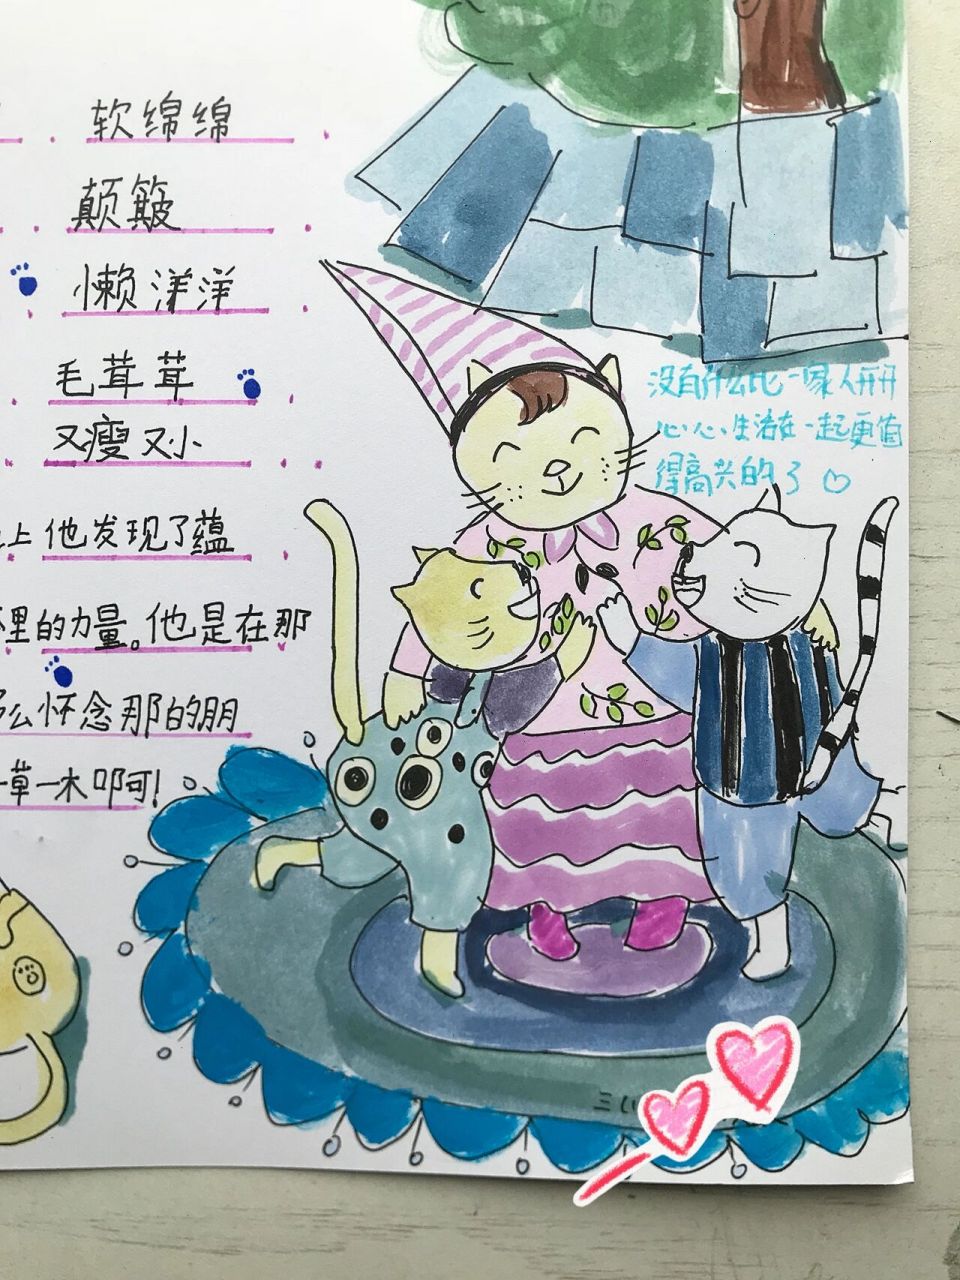 软绵绵
颠簸
懒洋洋
毛茸茸
又瘦又小
上他发现了蕴
里的力量。他是在那
么怀念那的朋
一草一木叩可！
没有什么比一家人开开
心心、生活在一起更值
得高兴的了♡